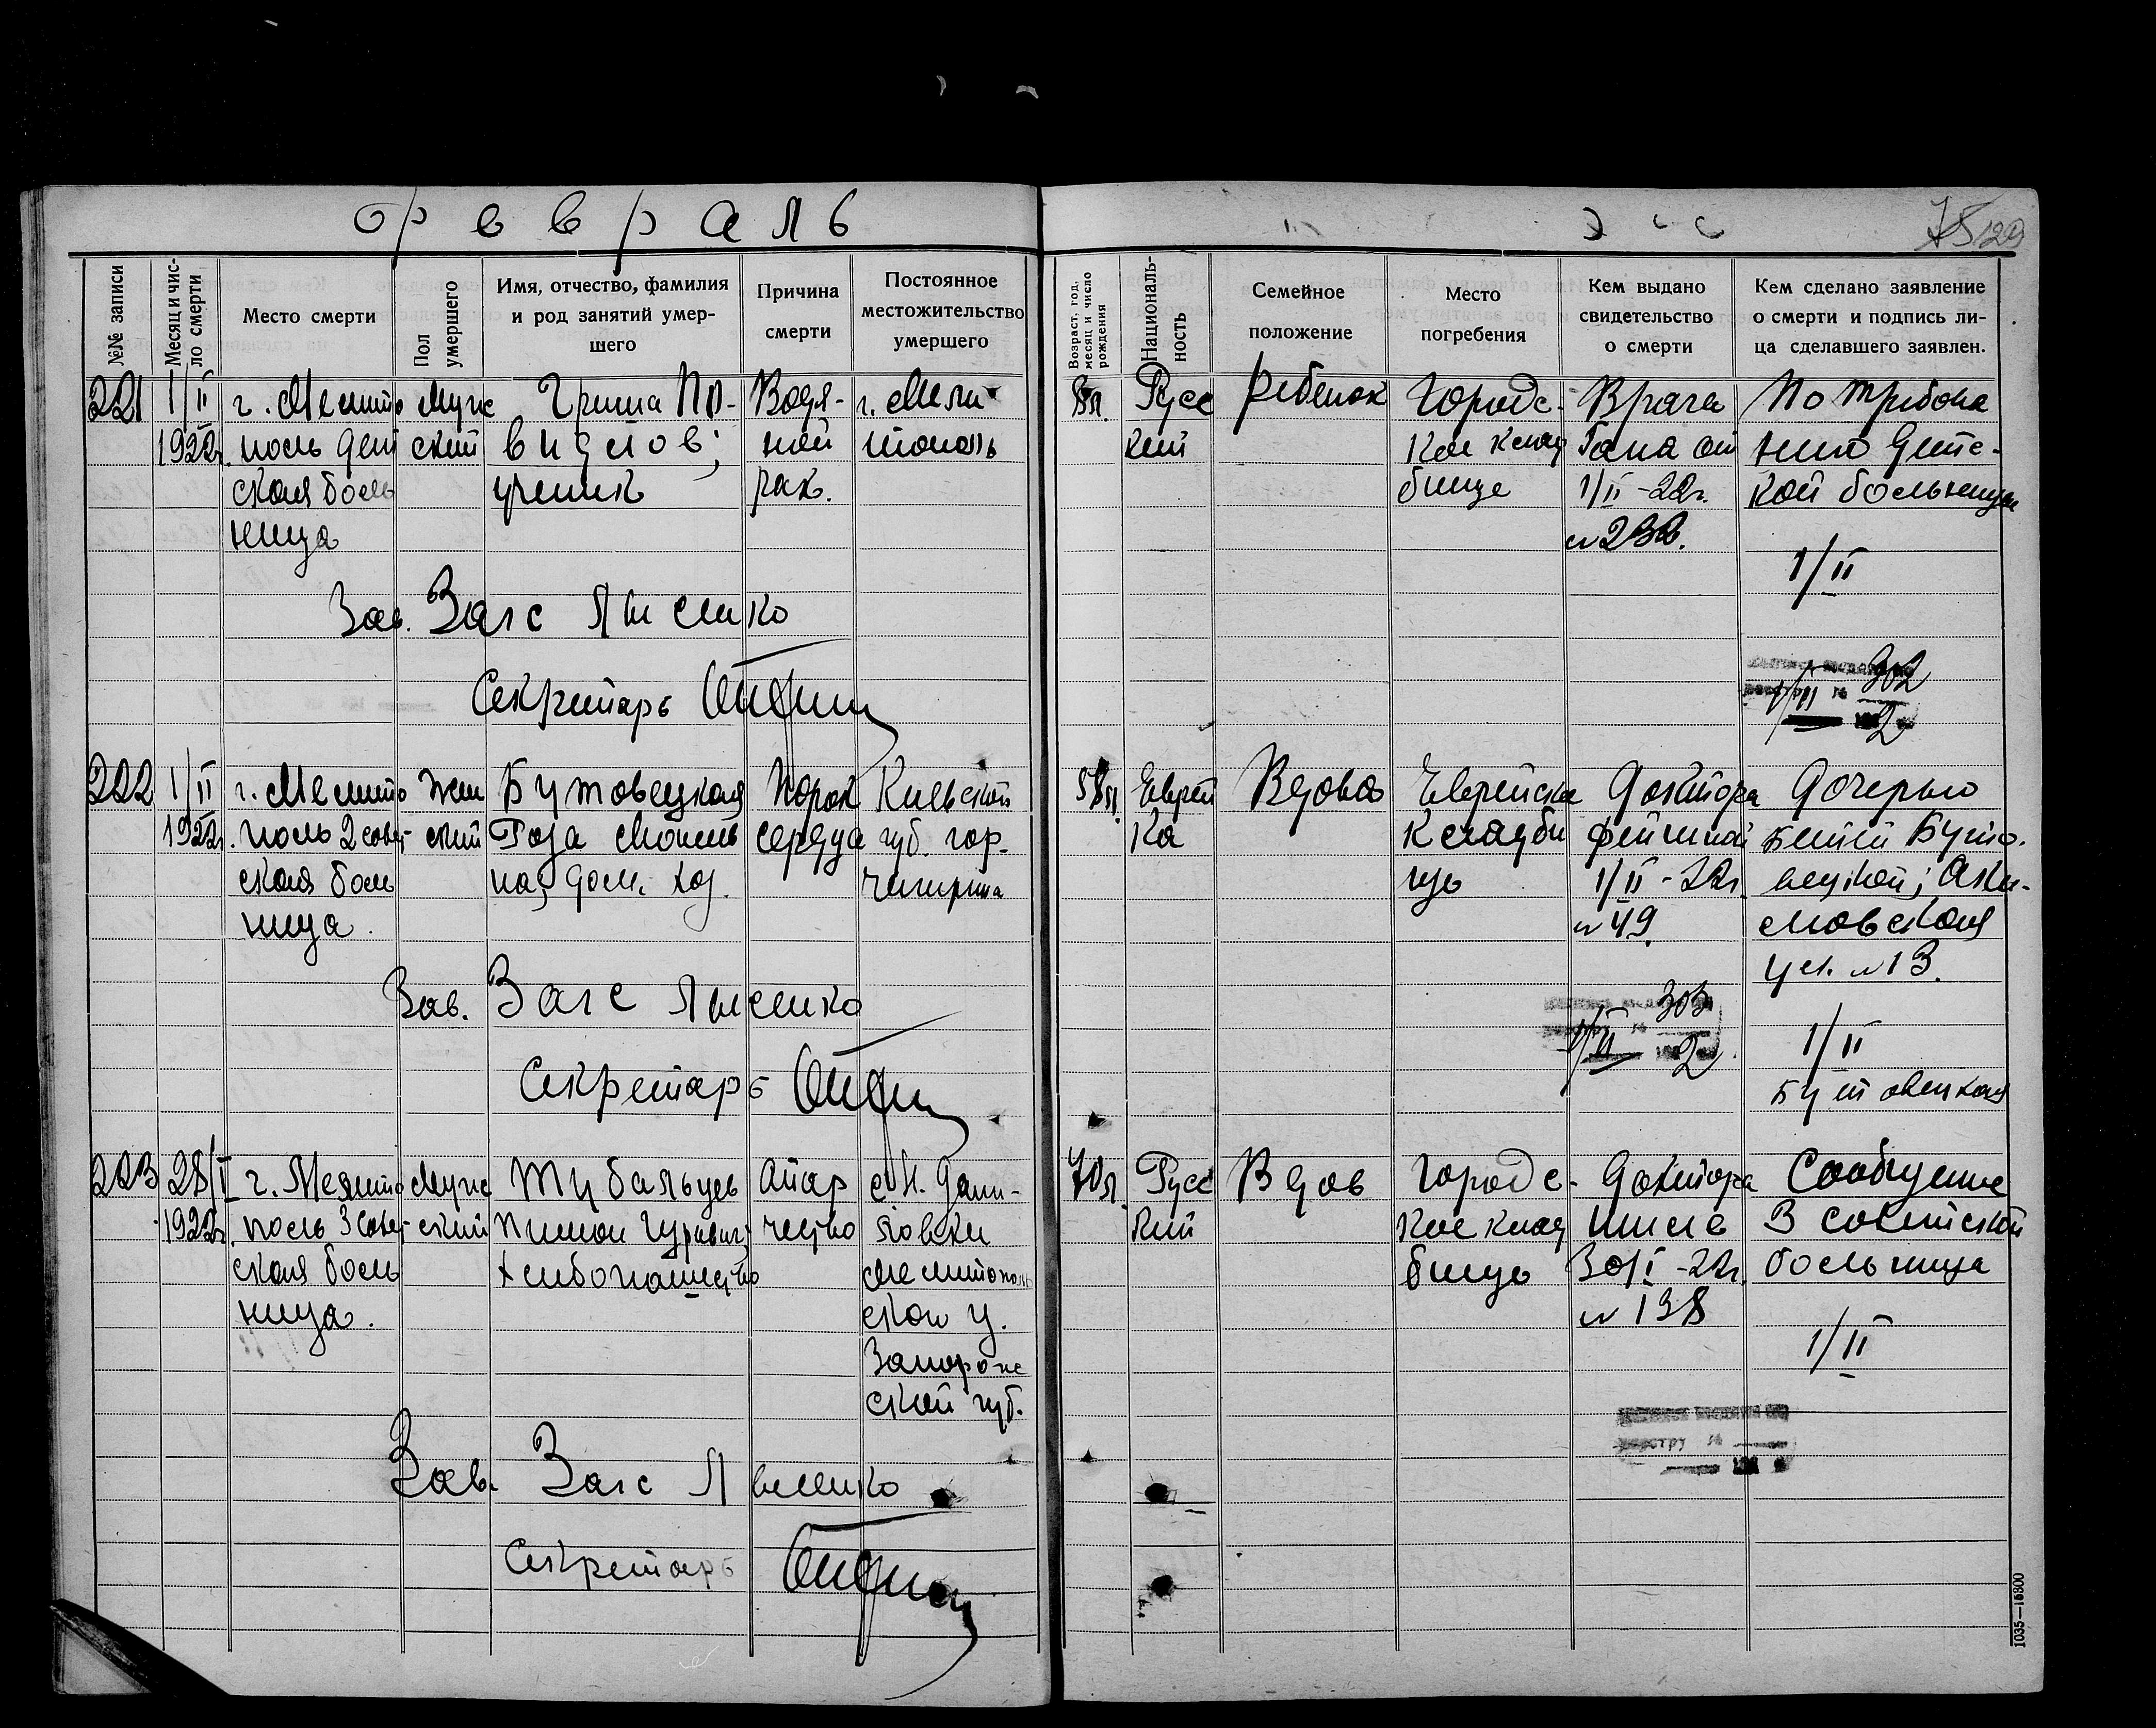 февраль
№№ записи
Месяц и число смерти
Место смерти
Пол умершего
Имя, отчество, фамилия
и род занятий умер-
шего
Причина
смерти
Постоянное
местожительство
умершего
Возраст, год, месяц и число рождения
Националь-
ность
Семейное
положение
Место
погребения
Кем выдано
свидетельство
о смерти
Кем сделано заявление
о смерти и подпись ли-
ца сделавшего заявлен.
221
1/II
1922г.
г. Мелито
поль Дет
ская боль
ница
Мужс
ский
Гриша По-
видлов;
ученик
Водя-
ной
рак.
г. Мели
тополь
8л.
Русс
кий
ребенок
Городс-
кое клад
бище
Врача
Гана от
1/II-22г.
№232.
По требова
нию Детс-
кой больницы
1/II
Зав. Загс Лысенко
Секретарь
302
2
222
1/II
1922г.
г. Мелито
поль 2 совет
ская боль
ница.
Жен
ский
Бутовецкая
Роза
на; дом. хоз.
Порок
сердца
Киевской
губ. гор.
Чигирина
58л.
Еврей
ка
Вдова
Еврейское
кладби
ще
Доктора
1/II-22г.
№49.
Дочерью
Бетей Буто-
вецкой; Аки-
мовская
ул. №13.
1/II
Бутовецкая
Зав. Загс Лысенко
303
2
Секретарь
223
28/I
1922г.
г. Мелито
поль 3 совет
ская боль
ница.
Мужс
ский
Тубальцев
Пимон Гурьвич;
хлебопашество
Стар
чество
с. Н. Дани-
ловки
Мелитополь
ского у.
Запорожс
ской губ.
70л.
Русс
кий
Вдов
Городс-
кое клад
бище
Доктора
30/I-22г.
№138
Сообщение
3 советской
больница
1/II
Зав. Загс Лысенко
Секретарь
1035—15300